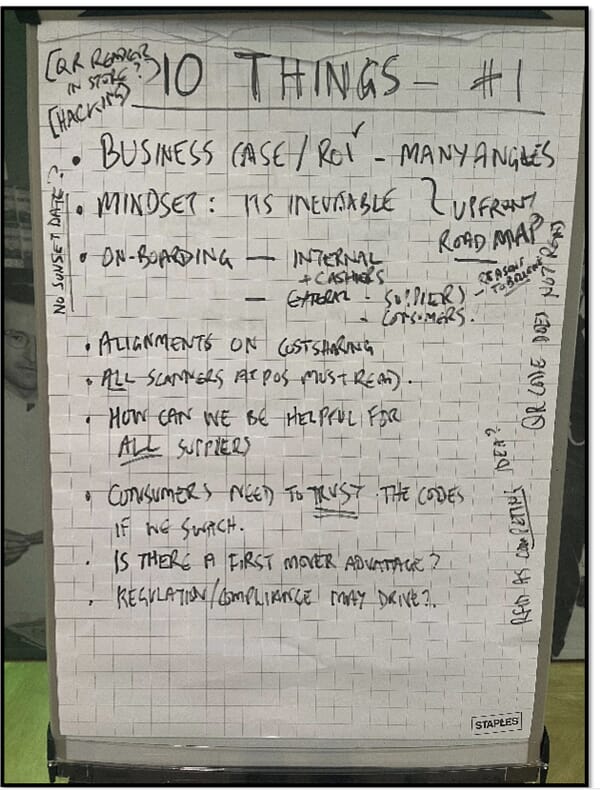 [QR READER
IN STORE?]
[HACKING]
10 THINGS - #1
• BUSINESS CASE / ROI ✓ - MANY ANGLES
• MINDSET: ITS INEVITABLE } UPFRONT
ROAD MAP
• ON-BOARDING — INTERNAL
+ CASHIERS
— EXTERNAL - SUPPLIERS - REASONS
TO BELIEVE
- CONSUMERS.
• ALIGNMENTS ON COSTSHARING
• ALL SCANNERS AT POS MUST READ.
• HOW CAN WE BE HELPFUL FOR
ALL SUPPLIERS
• CONSUMERS NEED TO TRUST THE CODES
IF WE SWITCH.
• IS THERE A FIRST MOVER ADVANTAGE?
• REGULATION/COMPLIANCE MAY DRIVE?.
NO SUNSET DATE?
QR CODE DOES NOT READ
AS COMPETING IDEA?
STAPLES